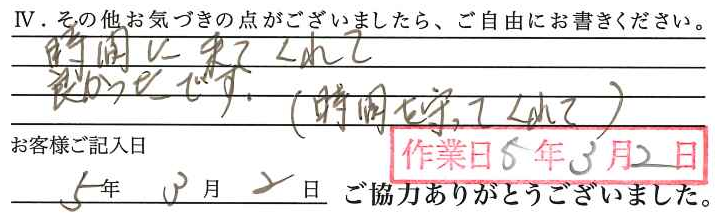 Ⅳ．その他お気づきの点がございましたら、ご自由にお書きください。
時間に来てくれて
良かったです。
(時間を守ってくれて)
お客様ご記入日
作業日5年3月2日
5年3月2日 ご協力ありがとうございました。